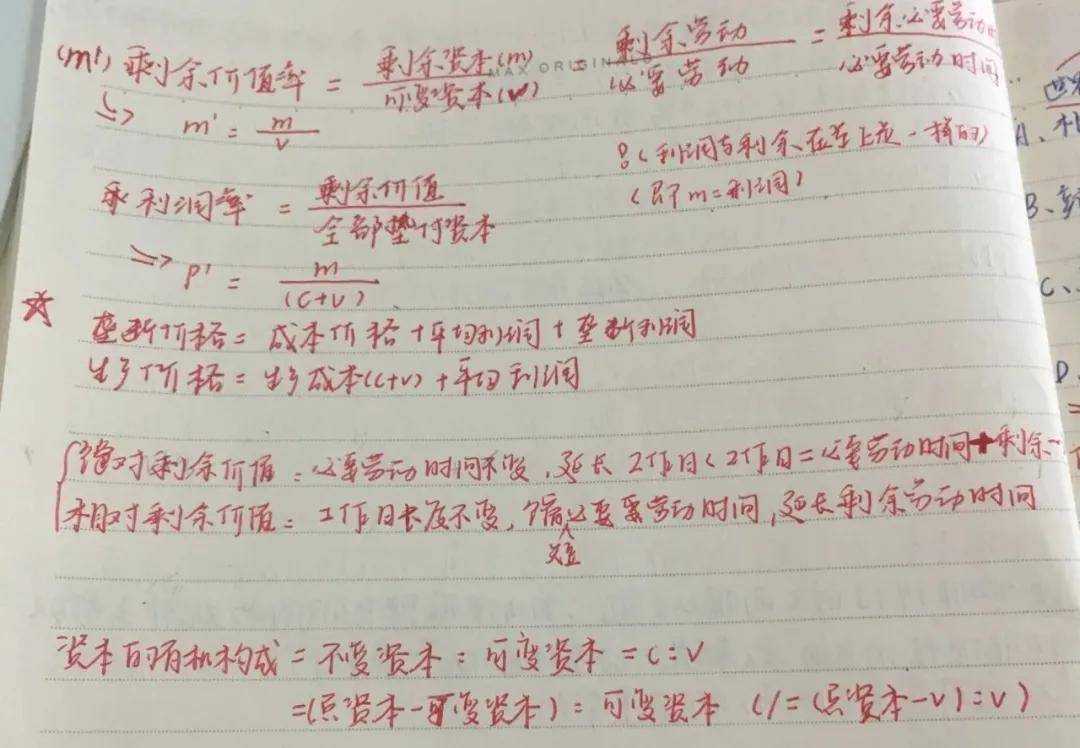 (m') 剩余价值率 = 剩余资本(m)/可变资本(v) = 剩余劳动/必要劳动 = 剩余必要劳动/必要劳动时间
MAX ORIGINALS
↳ m' = m/v
?(利润与剩余在量上是一样的)
(即 m=利润)
利润率 = 剩余价值/全部垫付资本
=> p' = m/(c+v)
☆
垄断价格 = 成本价格 + 平均利润 + 垄断利润
生产价格 = 生产成本(c+v) + 平均利润
绝对剩余价值 : 必要劳动时间不变, 延长工作日(工作日=必要劳动时间+剩余
相对剩余价值 : 工作日长度不变, 缩短必要劳动时间, 延长剩余劳动时间
资本的有机构成 = 不变资本 : 可变资本 = c : v
=(总资本-可变资本) : 可变资本 (/=(总资本-v):v)
A、
B、
C、
D、